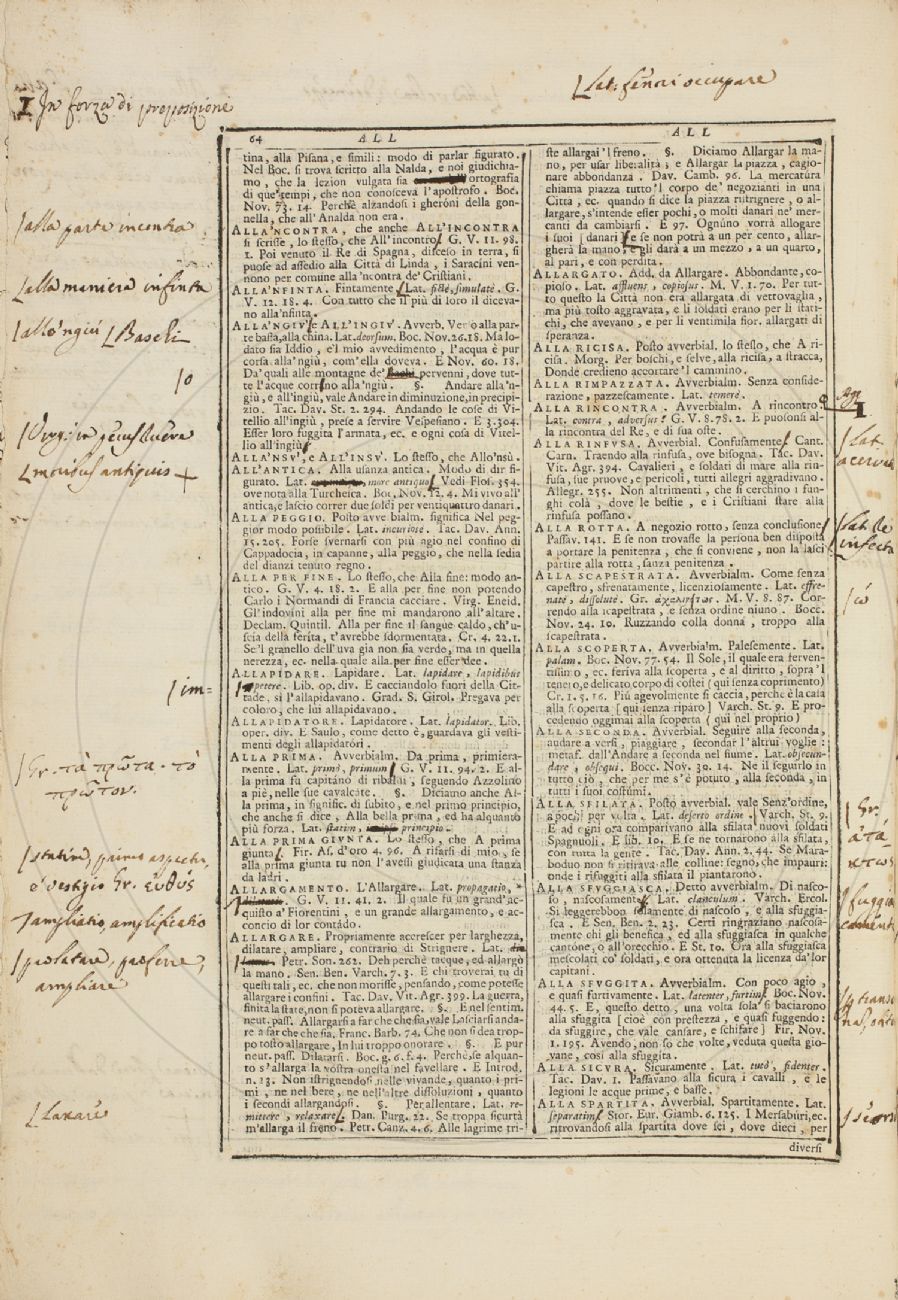 In forza di preposizione
Lat. occupare
64 ALL
ALL
tina, alla Pisana, e simili: modo di parlar figurato.
Nel Boc. si trova scritto alla Nalda, e noi giudichia-
mo, che la lezion vulgata sia ortografia
di que' tempi, che non conosceva l'apostrofo. Boc.
Nov. 73. 14. Perchè alzandosi i gheróni della gon-
nella, che all'Analda non era.
ALLA'NCONTRA, che anche ALL'INCONTRA
si scrisse, lo stesso, che All'incontro. G. V. 11. 98.
1. Poi venuto il Re di Spagna, disceso in terra, si
puose ad assedio alla Città di Linda, i Saracini ven-
nono per comune alla'ncontra de' Cristiani.
ALLA'NFINTA. Fintamente. Lat. fictè, simulatè. G.
V. 12. 18. 4. Con tutto che il più di loro il diceva-
no alla'nfinta.
ALLA'NGIV' e ALL'INGIV'. Avverb. Verso alla par-
te bassa, alla china. Lat. deorsum. Boc. Nov. 26. 18. Ma lo-
dato sia Iddio, e'l mio avvedimento, l'acqua è pur
corsa alla'ngiù, com'ella doveva. E Nov. 60. 18.
Da' quali alle montagne de' Bachi pervenni, dove tut-
te l'acque corrono alla'ngiù. §. Andare alla'n-
giù, e all'ingiù, vale Andare in diminuzione, in precipi-
zio. Tac. Dav. St. 2. 294. Andando le cose di Vi-
tellio all'ingiù, prese a servire Vespesiano. E 3. 304.
Esser loro fuggita l'armata, ec. e ogni cosa di Vitel-
lio all'ingiù.
ALLA'NSV', e ALL'INSV'. Lo stesso, che Allo'nsù.
ALL'ANTICA. Alla usanza antica. Modo di dir fi-
gurato. Lat. more antiquo. Vedi Flos. 354.
ove nota alla Turchesca. Boc. Nov. 12. 4. Mi vivo all'
antica, e lascio correr due soldi per ventiquattro danari.
ALLA PEGGIO. Posto avverbialm. significa Nel peg-
gior modo possibile. Lat. incuriose. Tac. Dav. Ann.
15. 205. Forse svernarsi con più agio nel confino di
Cappadocia, in capanne, alla peggio, che nella sedia
del dianzi tenuto regno.
ALLA PER FINE. Lo stesso, che Alla fine: modo an-
tico. G. V. 4. 18. 2. E alla per fine non potendo
Carlo i Normandi di Francia cacciare. Virg. Eneid.
Gl'indovini alla per fine mi mandarono all'altare.
Declam. Quintil. Alla per fine il sangue caldo, ch'u-
scia della fersta, t'avrebbe sdormentata. Cr. 4. 22. 1.
Se'l granello dell'uva gia non sia verde, ma in quella
nerezza, ec. nella quale alla per fine esser dee.
ALLAPIDARE. Lapidare. Lat. lapidare, lapidibus
petere. Lib. op. div. E cacciandolo fuori della Cit-
tade, si l'allapidavano. Grad. S. Girol. Pregava per
coloro, che lui allapidavano.
ALLAPIDATORE. Lapidatore. Lat. lapidator. Lib.
oper. div. E Saulo, come detto è, guardava gli vesti-
menti degli allapidatóri.
ALLA PRIMA. Avverbialm. Da prima, primiera-
mente. Lat. primò, primum. G. V. 11. 94. 2. E al-
la prima fu capitano di ribaldi, seguendo Azzolino
a piè, nelle sue cavalcate. §. Diciamo anche Al-
la prima, in signific. di subito, e nel primo principio,
che anche si dice, Alla bella prima, ed ha alquanto
più forza. Lat. statim, principio.
ALLA PRIMA GIVNTA. Lo stesso, che A prima
giunta. Fir. As. d'oro 4. 96. A rifarsi di mio, se
alla prima giunta tu non l'avessi giudicata una stanza
da ladri.
ALLARGAMENTO. L'Allargare. Lat. propagatio,
G. V. 11. 41. 2. Il quale fu un grand'ac-
quisto a' Fiorentini, e un grande allargamento, e ac-
concio di lor contádo.
ALLARGARE. Propriamente accrescer per larghezza,
dilatare, ampliare, contrario di Strignere. Lat.
Petr. Son. 262. Deh perchè tacque, ed allargò
la mano. Sen. Ben. Varch. 7. 3. E chi troverai tu di
questi tali, ec. che non morisse, pensando, come potesse
allargare i confini. Tac. Dav. Vit. Agr. 399. La guerra,
finita la state, non si poteva allargare. §. E nel sentim.
neut. pass. Allargarsi a far che che sia, vale Lasciarsi anda-
re a far che che sia. Franc. Barb. 74. Che non si dea trop-
po tosto allargare, In lui troppo onorare. §. E pur
neut. pass. Dilatarsi. Boc. g. 6. f. 4. Perchè, se alquan-
to s'allarga la vostra onestà nel favellare. E Introd.
n. 23. Non istrignendosi nelle vivande, quanto i pri-
mi, ne nel bere, ne nell'altre dissoluzioni, quanto
i secondi allargandosi. §. Per allentare. Lat. re-
mittere, relaxare. Dan. Purg. 22. Se troppa sicurtà
m'allarga il freno. Petr. Canz. 4. 6. Alle lagrime tri-
ste allargai'l freno. §. Diciamo Allargar la ma-
no, per usar liberalità; e Allargar la piazza, cagio-
nare abbondanza. Dav. Camb. 96. La mercatúra
chiama piazza tutto'l corpo de' negozianti in una
Città, ec. quando si dice la piazza ristrignere, o al-
largare, s'intende esser pochi, o molti danari ne' mer-
canti da cambiarsi. E 97. Ognúno vorrà allogare
i suoi [danari] e se non potrà a un per cento, allar-
gherà la mano egli darà a un mezzo, a un quarto,
al pari, e con perdita.
ALLARGATO. Add. da Allargare. Abbondante, co-
pioso. Lat. affluens, copiosus. M. V. 1. 70. Per tut-
to questo la Città non era allargata di vettovaglia,
ma più tosto aggravata, e li soldati erano per li stati-
chi, che avevano, e per li ventimila fior. allargati di
speranza.
ALLA RICISA. Posto avverbial. lo stesso, che A ri-
cisa. Morg. Per boschi, e selve, alla ricisa, a stracca,
Dónde credieno accortare'l cammino.
ALLA RIMPAZZATA. Avverbialm. Senza conside-
razione, pazzescamente. Lat. temerè.
ALLA RINCONTRA. Avverbialm. A rincontro.
Lat. contra, adversus. G. V. 8. 78. 2. E puosonsi al-
la rincontra del Re, e di sua oste.
ALLA RINFUSA. Avverbial. Confusamente. Cant.
Carn. Traendo alla rinfusa, ove bisogna. Tac. Dav.
Vit. Agr. 394. Cavalieri, e soldati di mare alla rin-
fusa, sue pruove, e pericoli, tutti allegri aggradivano.
Allegr. 255. Non altrimenti, che si cerchino i fun-
ghi colà, dove le bestie, e i Cristiani stare alla
rinfusa possano.
ALLA ROTTA. A negozio rotto, senza conclusione.
Passav. 141. E se non trovasse la persona ben disposta
a portare la penitenza, che si conviene, non la lasci
partire alla rotta, sanza penitenza.
ALLA SCAPESTRATA. Avverbialm. Come senza
capestro, sfrenatamente, licenziosamente. Lat. effre-
natè, dissolutè. Gr. ἀχαλινῶς. M. V. 8. 87. Cor-
rendo alla scapestrata, e senza ordine niuno. Bocc.
Nov. 24. 10. Ruzzando colla donna, troppo alla
scapestrata.
ALLA SCOPERTA. Avverbialm. Palesemente. Lat.
palam. Boc. Nov. 77. 54. Il Sole, il quale era ferven-
tissimo, ec. feriva alla scoperta, e al diritto, sopra'l
tenero, e delicato corpo di costei (qui senza coprimento)
Cr. 1. 5. 16. Più agevolmente si caccia, perchè è la casa
alla scoperta [qui senza riparo] Varch. St. 9. E pro-
cedendo oggimai alla scoperta (qui nel proprio)
ALLA SECONDA. Avverbial. Seguire alla seconda,
andare a versi, piaggiare, secondar l'altrui voglie:
metaf. dall'Andare a seconda nel fiume. Lat. obsecun-
dare, obsequi. Bocc. Nov. 30. 14. Ne il seguirlo in
tutto ciò, che per me s'è potuto, alla seconda, in
tutti i suoi costúmi.
ALLA SFILATA. Posto avverbial. vale Senz'ordine,
a pochi per volta. Lat. deserto ordine. Varch. St. 9.
E ad ogni ora comparivano alla sfilata nuovi soldati
Spagnuoli. E lib. 10. E se ne tornarono alla sfilata,
con tutta la gente. Tac. Dav. Ann. 2. 44. Se Mara-
boduo non si ritirava alle colline: segno, che impauri:
onde i rifuggiti alla sfilata il piantarono.
ALLA SFVGGIASCA. Detto avverbialm. Di nasco-
so, nascosamente. Lat. clanculum. Varch. Ercol.
Si leggerebbon solamente di nascoso, e alla sfuggia-
sca. E Sen. Ben. 2. 23. Certi ringraziano nascosa-
mente chi gli benefica, ed alla sfuggiasca in qualche
cantóne, o all'orecchio. E St. 10. Ora alla sfuggiasca
mescolati co' soldati, e ora ottenuta la licenza da'lor
capitani.
ALLA SFVGGITA. Avverbialm. Con poco agio,
e quasi furtivamente. Lat. latenter, furtim. Boc. Nov.
44. 5. E, questo detto, una volta sola si baciarono
alla sfuggita [cioè con prestezza, e quasi fuggendo:
da sfuggire, che vale cansare, e schifare] Fir. Nov.
1. 195. Avendo, non so che volte, veduta questa gio-
vane, così alla sfuggita.
ALLA SICVRA. Sicuramente. Lat. tutò, fidenter.
Tac. Dav. 1. Passavano alla sicura i cavalli, e le
legioni le acque prime, e basse.
ALLA SPARTITA. Avverbial. Spartitamente. Lat.
separatim. Stor. Eur. Giamb. 6. 125. I Mersabúri, ec.
ritrovandosi alla spartita dove sei, dove dieci, per
diversi
alla parte incontra
alla maniera infinta
allo'ngiù Baschi
o
antiquis
im-
Gr. τὰ πρῶτα. τὸ
πρῶτον.
statim, primo aspectu,
e vestigio Gr. εὐθύς
ampliatio, amplificatio
prolatare, proferre,
ampliare
Laxare
Lat.
Lat. re
infecta
ω
Gr.
ἀτά-
κτως